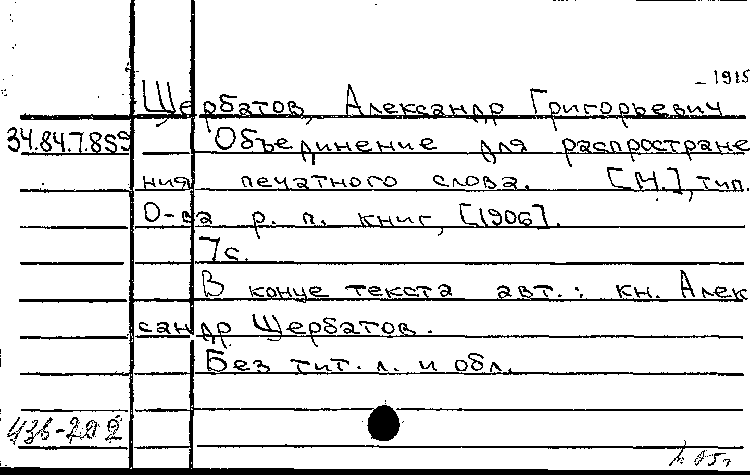 - 1915
Щербатов, Александр Григорьевич
34.84.7.859 Объединение для распростране
ния печатного слова. [М.], тип.
О-ва р. п. книг, [1906].
7с.
В конце текста авт.: кн. Алек
сандр Щербатов.
Без тит. л. и обл.
436-202